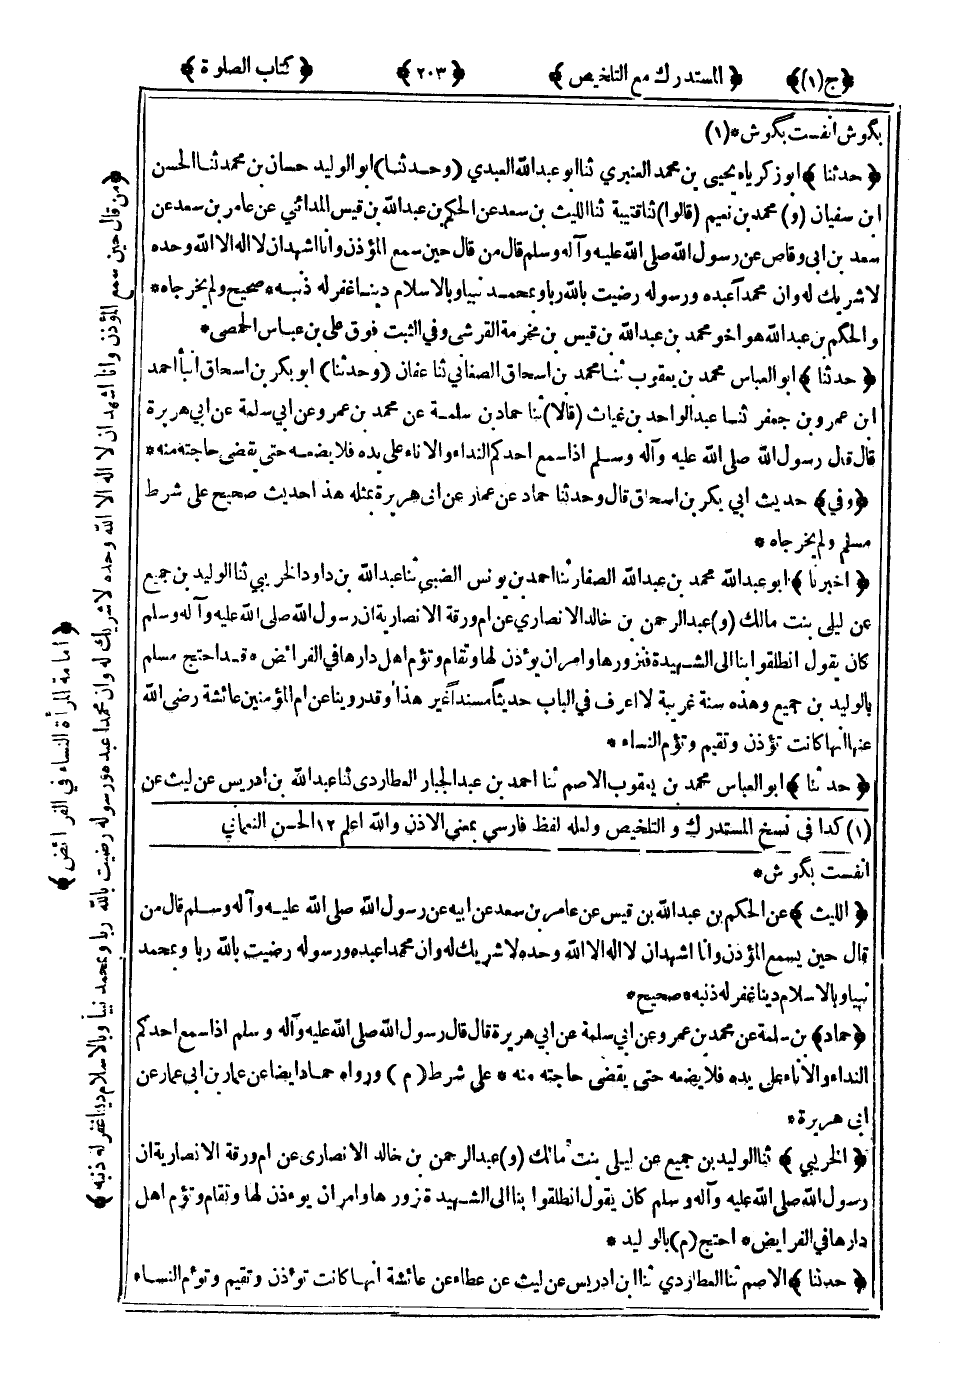 ﴿ج(١)﴾ ﴿المستدرك مع التلخيص﴾ ﴿٢٠٣﴾ ﴿كتاب الصلوة﴾
بگوش انفست بگوش*(١)
﴿حدثنا﴾ ابو زكرياء يحيى بن محمد العنبري ثنا ابو عبدالله العبدي (وحدثنا) ابو الوليد حسان بن محمد ثنا الحسن
ابن سفيان (و) محمد بن نعيم (قالوا) ثنا قتيبة ثنا الليث بن سعد عن الحكم بن عبدالله بن قيس المدائني عن عامر بن سعد عن
سعد بن ابى وقاص عن رسول الله صلى الله عليه وآله وسلم قال من قال حين سمع المؤذن وانا اشهد ان لا اله الا الله وحده
لا شريك له وان محمداً عبده ورسوله رضيت بالله ربا وبمحمد نبيا وبالاسلام دينا غفر له ذنبه * صحيح ولم يخرجاه *
والحكم بن عبدالله هو اخو محمد بن عبدالله بن قيس بن مخرمة القرشي وفي الثبت فوق على بن عباس الحمصى *
﴿حدثنا﴾ ابو العباس محمد بن يعقوب ثنا محمد بن اسحاق الصغاني ثنا عفان (وحدثنا) ابو بكر بن اسحاق انبأ احمد
ابن عمرو بن جعفر ثنا عبد الواحد بن غياث (قالا) ثنا حماد بن سلمة عن محمد بن عمرو عن ابي سلمة عن ابي هريرة
قال قال رسول الله صلى الله عليه وآله وسلم اذا سمع احدكم النداء والاناء على يده فلا يضعه حتى يقضى حاجته منه *
﴿وفي﴾ حديث ابي بكر بن اسحاق قال وحدثنا حماد عن عمار عن ابى هريرة بمثله هذا حديث صحيح على شرط
مسلم ولم يخرجاه *
﴿اخبرنا﴾ ابو عبدالله محمد بن عبدالله الصفار ثنا احمد بن يونس الضبي ثنا عبدالله بن داود الخريبي ثنا الوليد بن جميع
عن ليلى بنت مالك (و) عبدالرحمن بن خالد الانصاري عن ام ورقة الانصارية ان رسول الله صلى الله عليه وآله وسلم
كان يقول انطلقوا بنا الى الشهيدة فنزورها وامر ان يوٴذن لها وتقام وتؤم اهل دارها في الفرائض * قد احتج مسلم
بالوليد بن جميع وهذه سنة غريبة لا اعرف في الباب حديثاً مسنداً غير هذا وقد روينا عن ام المؤمنين عائشة رضى الله
عنها انها كانت تؤذن وتقيم وتؤم النساء *
﴿حدثنا﴾ ابو العباس محمد بن يعقوب الاصم ثنا احمد بن عبد الجبار العطاردى ثنا عبدالله بن ادريس عن ليث عن
(١) كذا فى نسخ المستدرك و التلخيص ولعله لفظ فارسي بمعنى الاذن والله اعلم ١٢ الحسن النعماني
انفست بگوش *
﴿الليث﴾ عن الحكم بن عبدالله بن قيس عن عامر بن سعد عن ابيه عن رسول الله صلى الله عليه وآله وسلم قال من
قال حين يسمع المؤذن وانا اشهد ان لا اله الا الله وحده لا شريك له وان محمدا عبده ورسوله رضيت بالله ربا وبمحمد
نبيا وبالاسلام دينا غفر له ذنبه * صحيح *
﴿حماد﴾ بن سلمة عن محمد بن عمرو عن ابي سلمة عن ابي هريرة قال قال رسول الله صلى الله عليه وآله وسلم اذا سمع احدكم
النداء والاناء على يده فلا يضعه حتى يقضى حاجته منه * على شرط (م) ورواه حماد ايضا عن عمار بن ابى عمار عن
ابى هريرة *
﴿الخريبي﴾ ثنا الوليد بن جميع عن ليلى بنت مالك (و) عبدالرحمن بن خالد الانصارى عن ام ورقة الانصارية ان
رسول الله صلى الله عليه وآله وسلم كان يقول انطلقوا بنا الى الشهيدة نزورها وامر ان يوءذن لها وتقام وتؤم اهل
دارها في الفرايض * احتج (م) بالوليد *
﴿حدثنا﴾ الاصم ثنا العطاردي ثنا ابن ادريس عن ليث عن عطاء عن عائشة انها كانت توٴذن وتقيم وتوٴم النساء
﴿من قال حين سمع المؤذن وانا اشهد ان لا اله الا الله وحده لا شريك له وان محمدا عبده ورسوله رضيت بالله ربا وبمحمد نبياً وبالاسلام دينا غفر له ذنبه﴾
﴿امامة المرأة النساء في الفرائض﴾